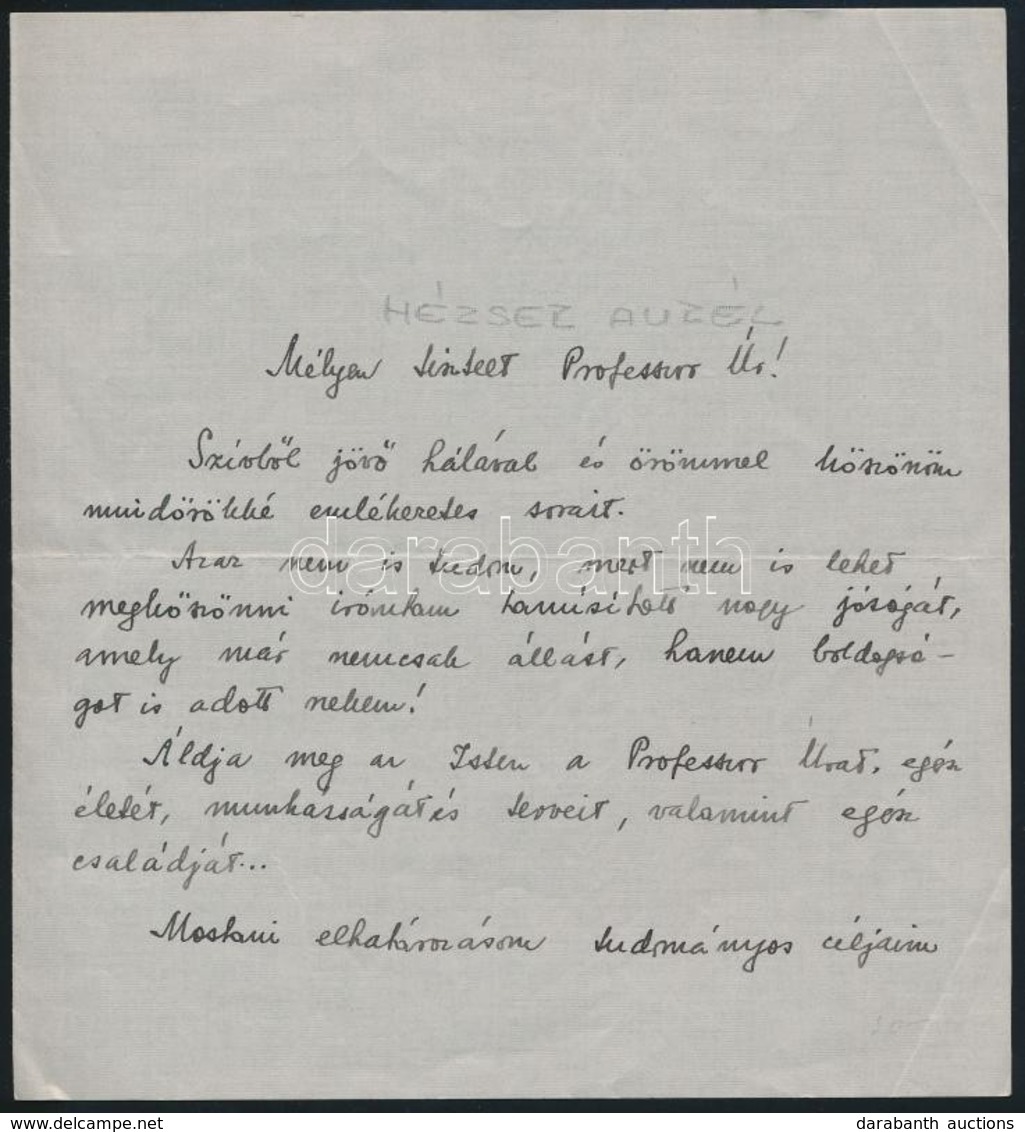 HÉZSER AURÉL
Mélyen tisztelt Professzor Úr!
Szívből jövő hálával és örömmel köszönöm
mindörökké emlékezetes sorait.
Azaz nem is tudom, mert nem is lehet
megköszönni irántam tanúsított nagy jóságát,
amely már nemcsak állást, hanem boldogsá-
got is adott nekem!
Áldja meg az Isten a Professzor Urat, egész
életét, munkásságát és terveit, valamint egész
családját...
Mostani elhatározásom tudományos céljaim
darabanth
www.delcampe.net
darabanth auctions